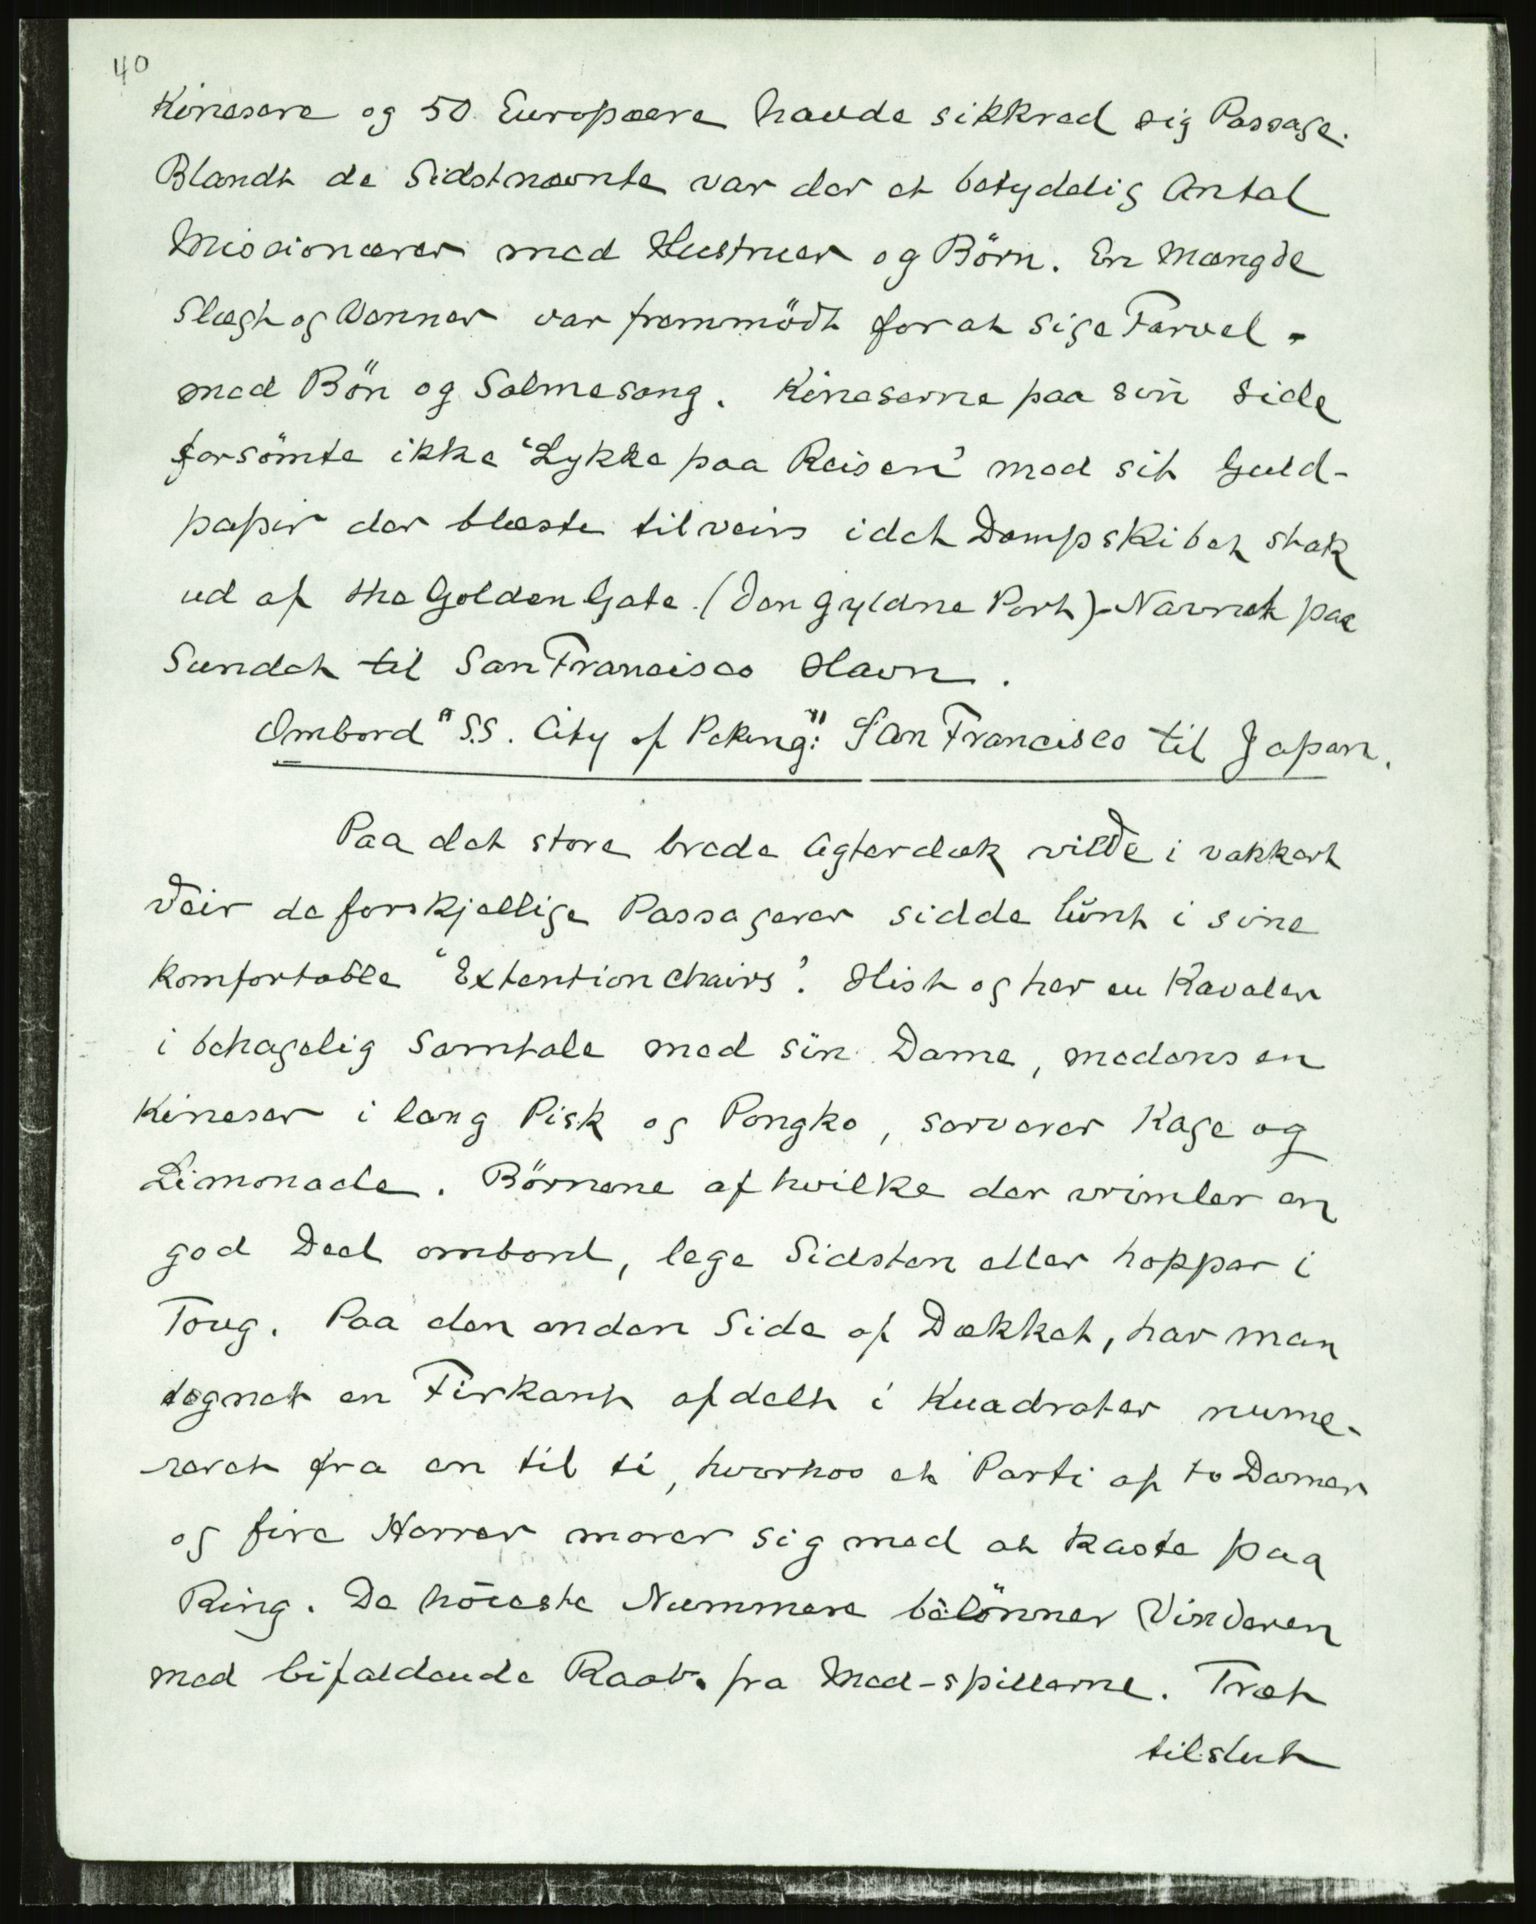 40
Kinesere og 50 Europæere havde sikkred sig Passage.
Blandt de Sidstnævnte var der et betydelig Antal
Missionærer med Hustruer og Börn. En Mængde
Slægt og Venner var fremmödt for at sige Farvel -
med Bön og Salmesang. Kineserne paa sin Side
forsömte ikke 'Lykke paa Reisen' med sit Guld-
papir der blæste tilveirs idet Dampskibet stak
ud af the Golden Gate. (den gyldne Port) - Navnet paa
Sundet til San Francisco Havn.
Ombord "S.S. City of Peking": San Francisco til Japan.
Paa det store brede Agterdæk vilde i vakkert
Veir de forskjellige Passagerer sidde lunt i sine
komfortable 'Extention chairs'. Hist og her en Kavaler
i behagelig Samtale med sin Dame, medens en
Kineser i lang Pisk og Pongko, serverer Kage og
Limonade. Börnene af hvilke der vrimler en
god Deel ombord, lege Sidsten eller hopper i
Toug. Paa den anden Side af Dækket, har man
tegnet en Firkant afdelt i Kuadrater nume-
reret fra en til ti, hvorhos et Parti af to Damer
og fire Herrer morer sig med at kaste paa
Ring. De höieste Nummere belönner Vinderen
med bifaldende Raab. fra Med-spillerne. Træt
tilslut